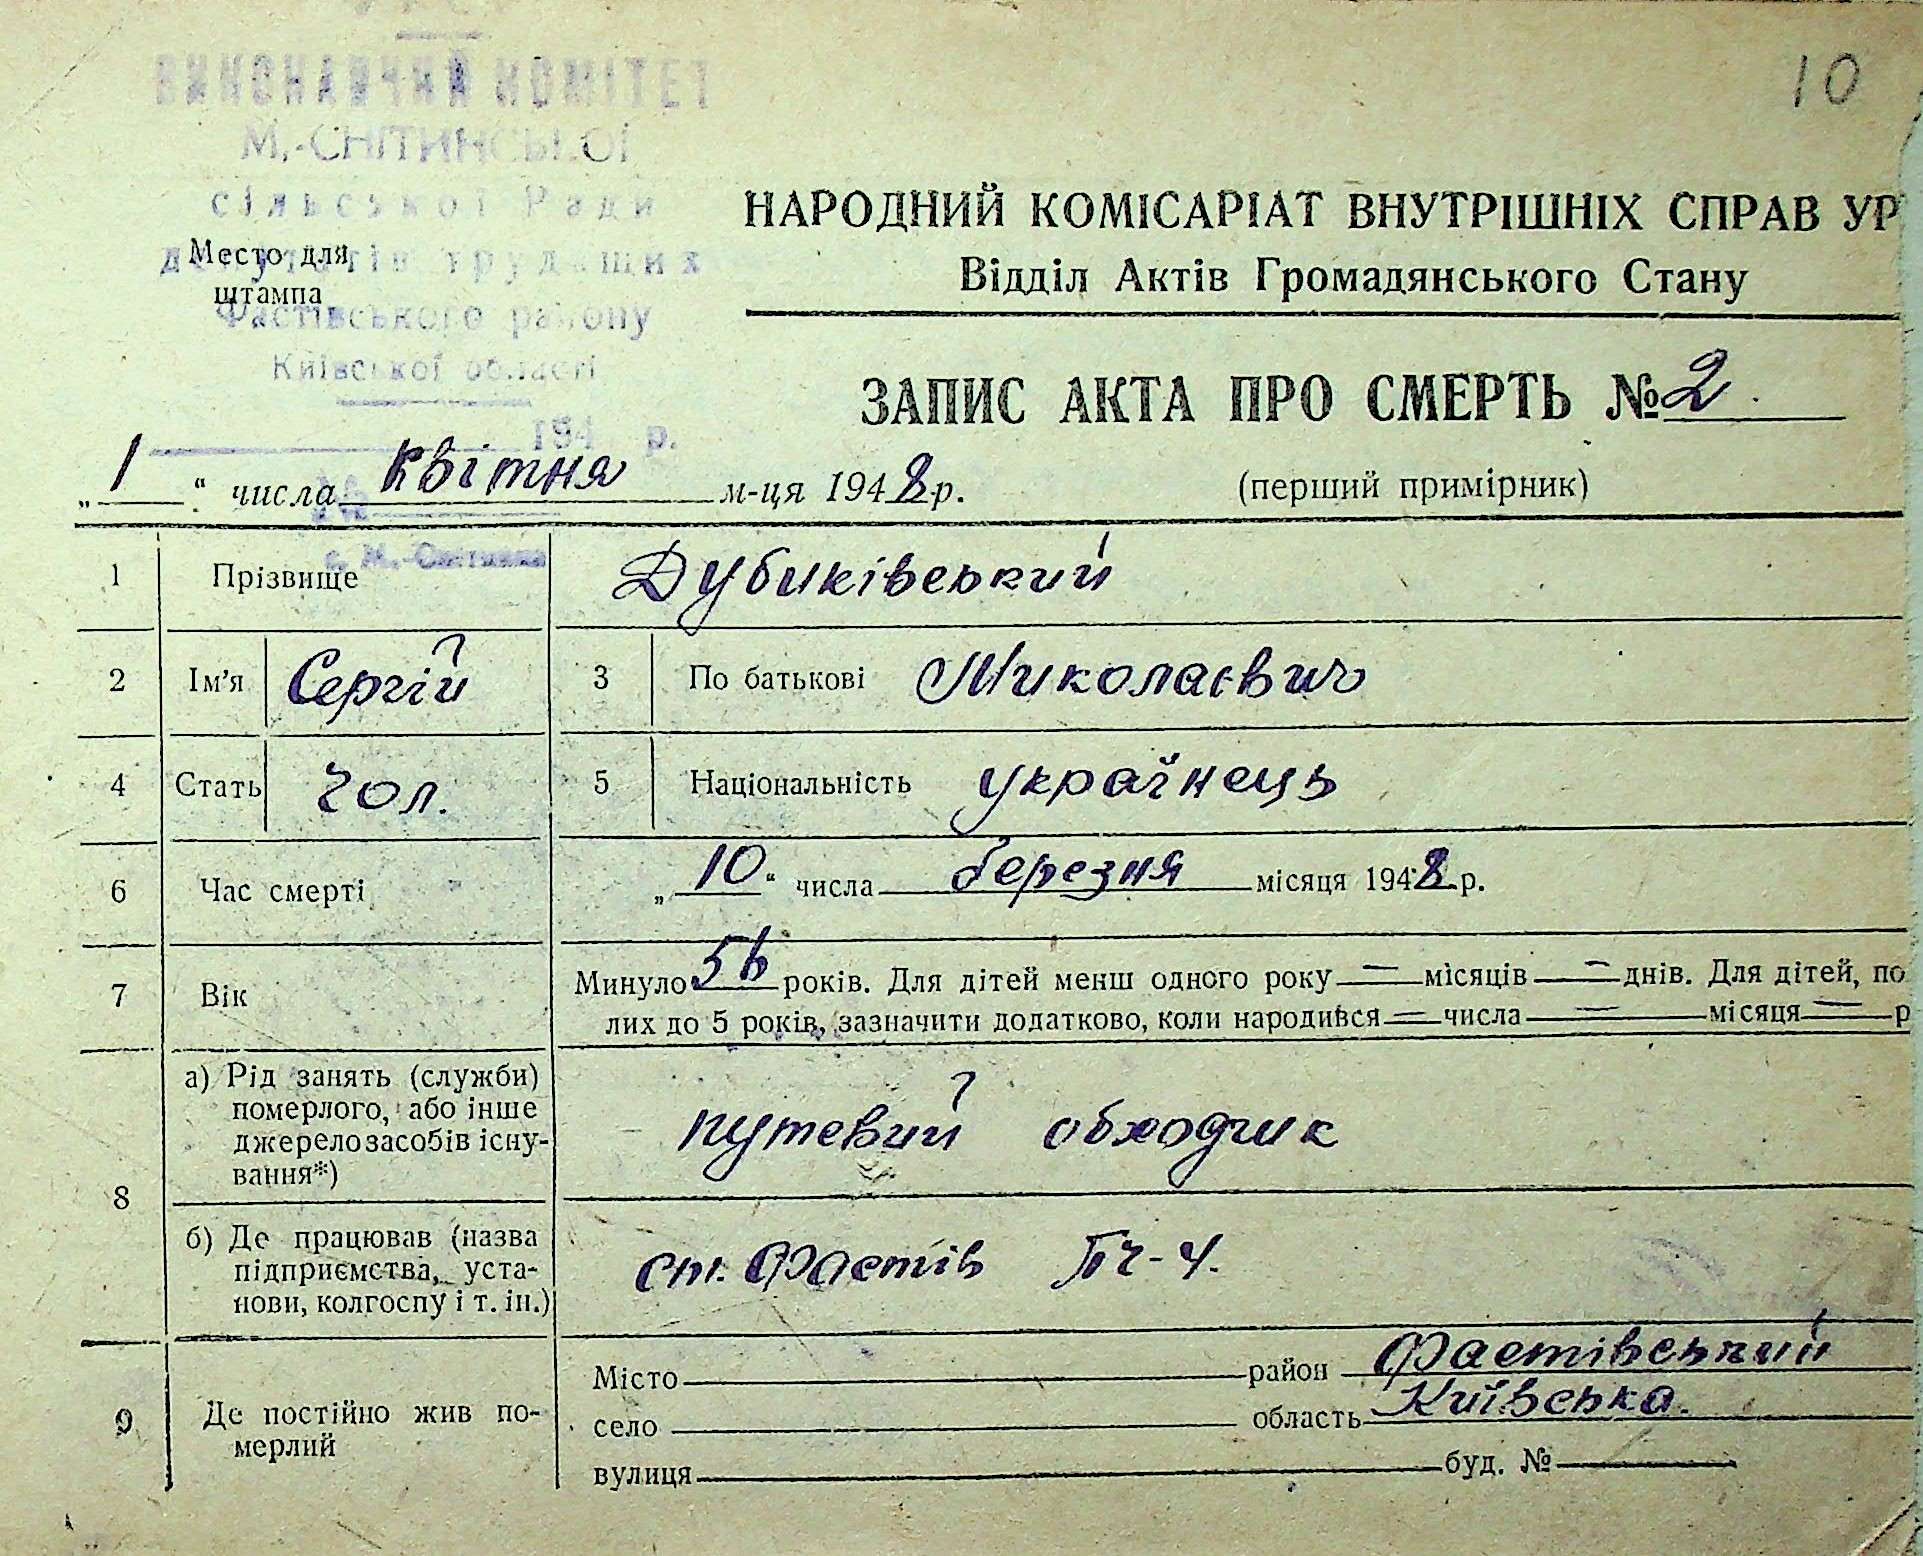 10
УРСР
ВИКОНАВЧИЙ КОМІТЕТ
М.-СНІТИНСЬКОЇ
сільської Ради
депутатів трудящих
Фастівського району
Київської області
194 р.
№
с. М.-Снітинка
Место для
штампа
НАРОДНИЙ КОМІСАРІАТ ВНУТРІШНІХ СПРАВ УР
Відділ Актів Громадянського Стану
ЗАПИС АКТА ПРО СМЕРТЬ № 2.
„1“ числа квітня м-ця 1948 р. (перший примірник)
1 Прізвище Дубиківський
2 Ім'я Сергій 3 По батькові Миколаєвич
4 Стать чол. 5 Національність українець
6 Час смерті „10.“ числа березня місяця 1948 р.
7 Вік Минуло 56 років. Для дітей менш одного року — місяців — днів. Для дітей, по
лих до 5 років, зазначити додатково, коли народився — числа — місяця — р
8 а) Рід занять (служби)
померлого, або інше
джерело засобів існу-
вання*)
путевий обходчик
б) Де працював (назва
підприємства, уста-
нови, колгоспу і т. ін.)
ст. Фастів ПЧ-4.
9 Де постійно жив по-
мерлий
Місто район Фастівський
село область Київська.
вулиця буд. №